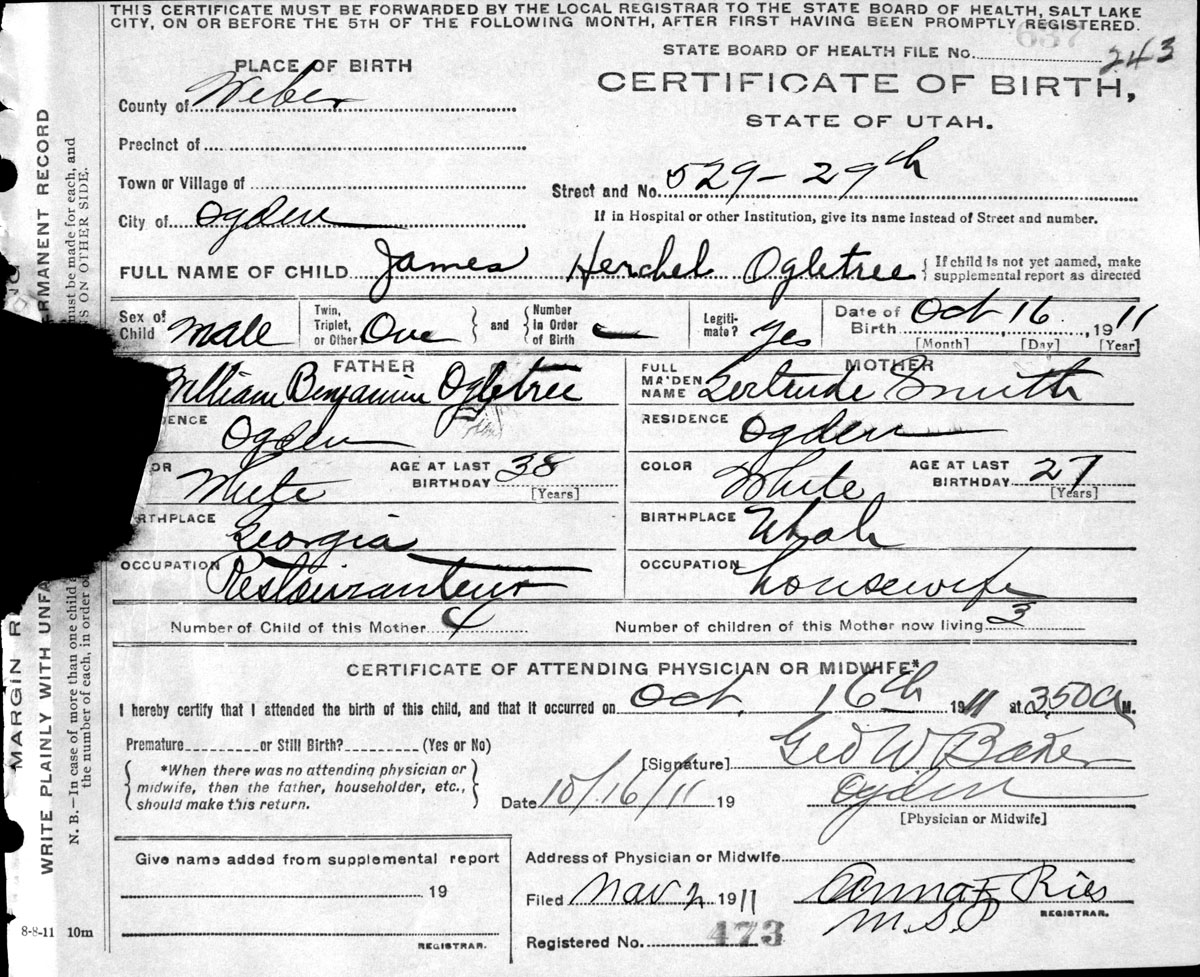 THIS CERTIFICATE MUST BE FORWARDED BY THE LOCAL REGISTRAR TO THE STATE BOARD OF HEALTH, SALT LAKE
CITY, ON OR BEFORE THE 5TH OF THE FOLLOWING MONTH, AFTER FIRST HAVING BEEN PROMPTLY REGISTERED.
637
STATE BOARD OF HEALTH FILE No. 243
PLACE OF BIRTH
CERTIFICATE OF BIRTH,
County of Weber
STATE OF UTAH.
Precinct of
Town or Village of
Street and No. 529-29th
City of Ogden
If in Hospital or other Institution, give its name instead of Street and number.
FULL NAME OF CHILD James Herchel Ogletree { If child is not yet named, make
supplemental report as directed
Sex of Child Male Twin, Triplet, or Other One } and { Number in Order of Birth Legitimate? Yes Date of Birth Oct 16, 1911
[Month] [Day] [Year]
FATHER
William Benjamin Ogletree
FULL MAIDEN NAME MOTHER Gertrude Smith
ENCE Ogden
RESIDENCE Ogden
OR White AGE AT LAST BIRTHDAY 38 [Years]
COLOR White AGE AT LAST BIRTHDAY 27 [Years]
RTHPLACE Georgia
BIRTHPLACE Utah
OCCUPATION Restauranteur
OCCUPATION housewife
Number of Child of this Mother 4 Number of children of this Mother now living 3
CERTIFICATE OF ATTENDING PHYSICIAN OR MIDWIFE*
I hereby certify that I attended the birth of this child, and that it occurred on Oct. 16th 1911 at 3.50 a M.
Premature or Still Birth? (Yes or No)
[Signature] Geo W Baker
{ *When there was no attending physician or
midwife, then the father, householder, etc.,
should make this return. }
Date 10/16/11 19 Ogden
[Physician or Midwife]
Give name added from supplemental report
19
REGISTRAR.
Address of Physician or Midwife
Filed Nov 2 1911 Anna F Ries
REGISTRAR.
Registered No. 473
MARGIN R
WRITE PLAINLY WITH UNFA
RMANENT RECORD
N. B.—In case of more than one child
must be made for each, and
the number of each, in order o
S ON OTHER SIDE.
8-8-11 10m